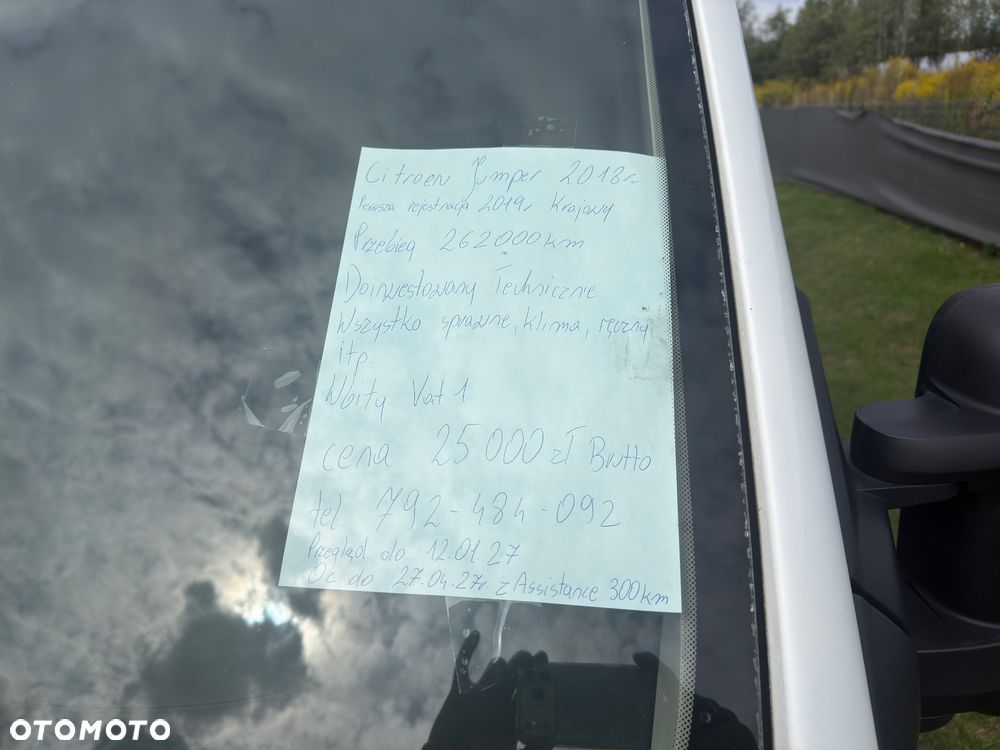 Citroen Jumper 2018r
Pierwsza rejestracja 2019r Krajowy
Przebieg 262000km
Doinwestowany Technicznie
Wszystko sprawne, Klima, ręczny
itp.
Wbity Vat 1
cena 25 000 zł Brutto
tel. 792-484-092
Przegląd do 12.01.27
Oc do 27.04.27r. z Assistance 300km
OTOMOTO